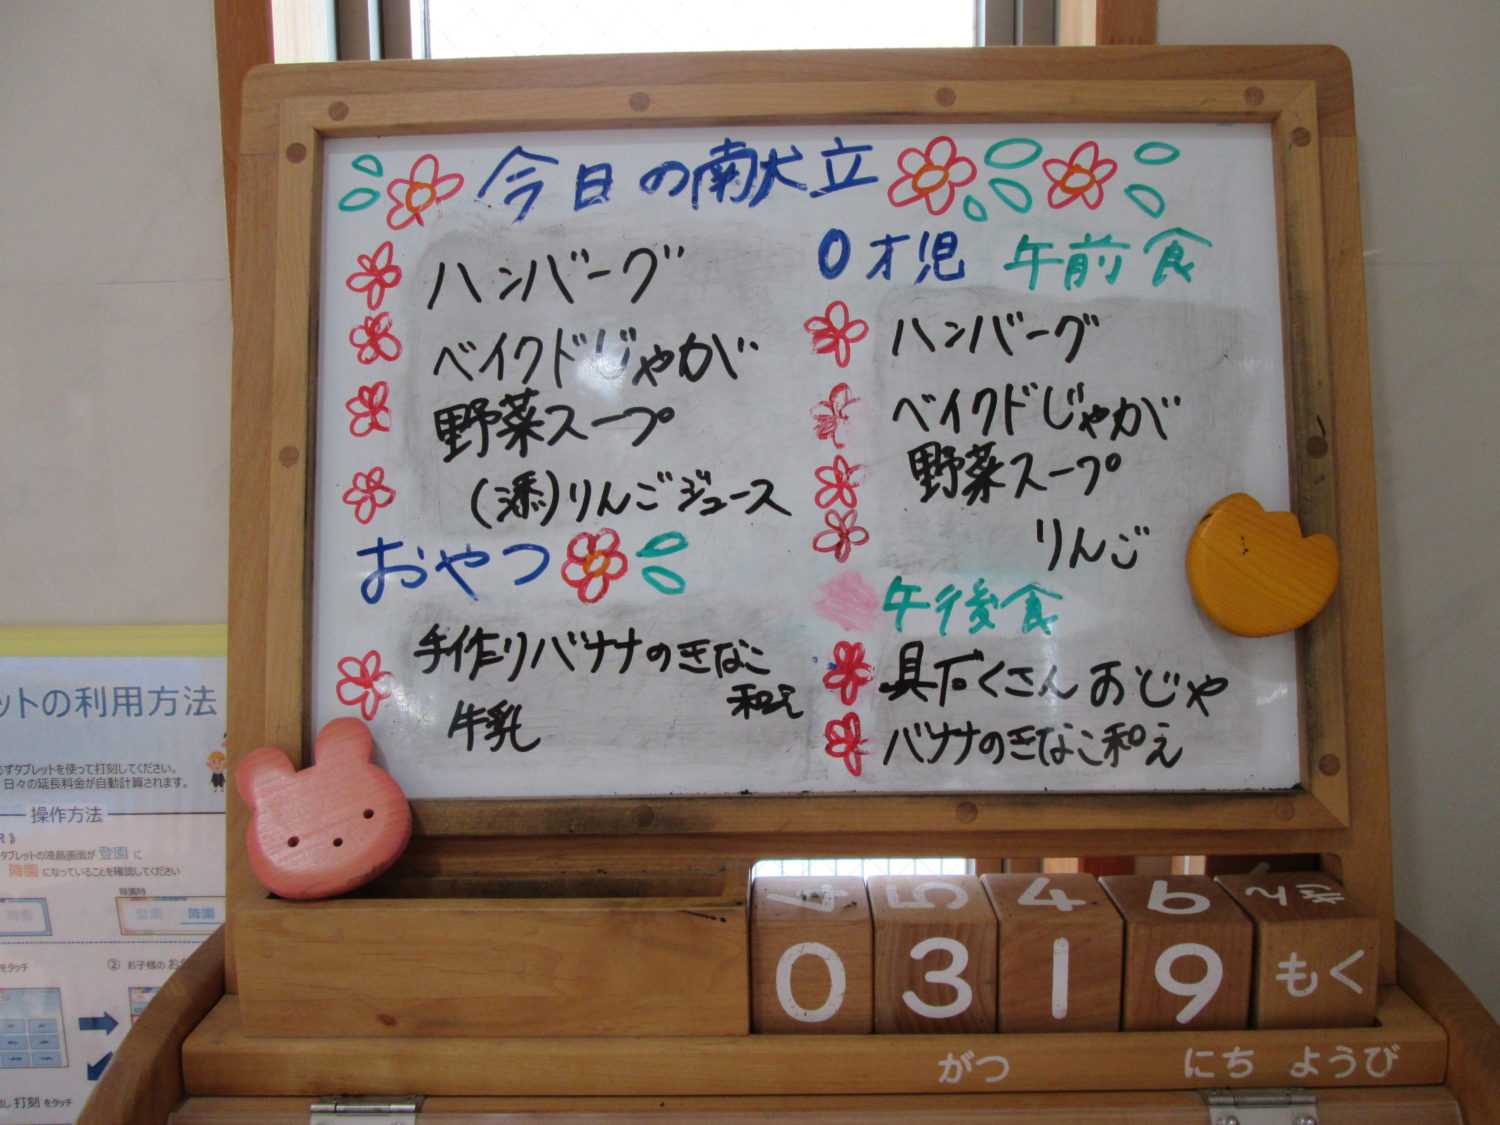 今日の献立
ハンバーグ
ベイクドじゃが
野菜スープ
(添)りんごジュース
おやつ
手作りバナナのきなこ
和え
牛乳
0才児 午前食
ハンバーグ
ベイクドじゃが
野菜スープ
りんご
午後食
具だくさんおじや
バナナのきなこ和え
4 5 4 6 きん
0 3 1 9 もく
がつ にち ようび
ットの利用方法
ずタブレットを使って打刻してください。
日々の延長料金が自動計算されます。
操作方法
タブレットの液晶画面が 登園 に
降園 になっていることを確認してください
降園時
降園 登園 降園
をタッチ ② お子様のお
し 打刻 をタッチ